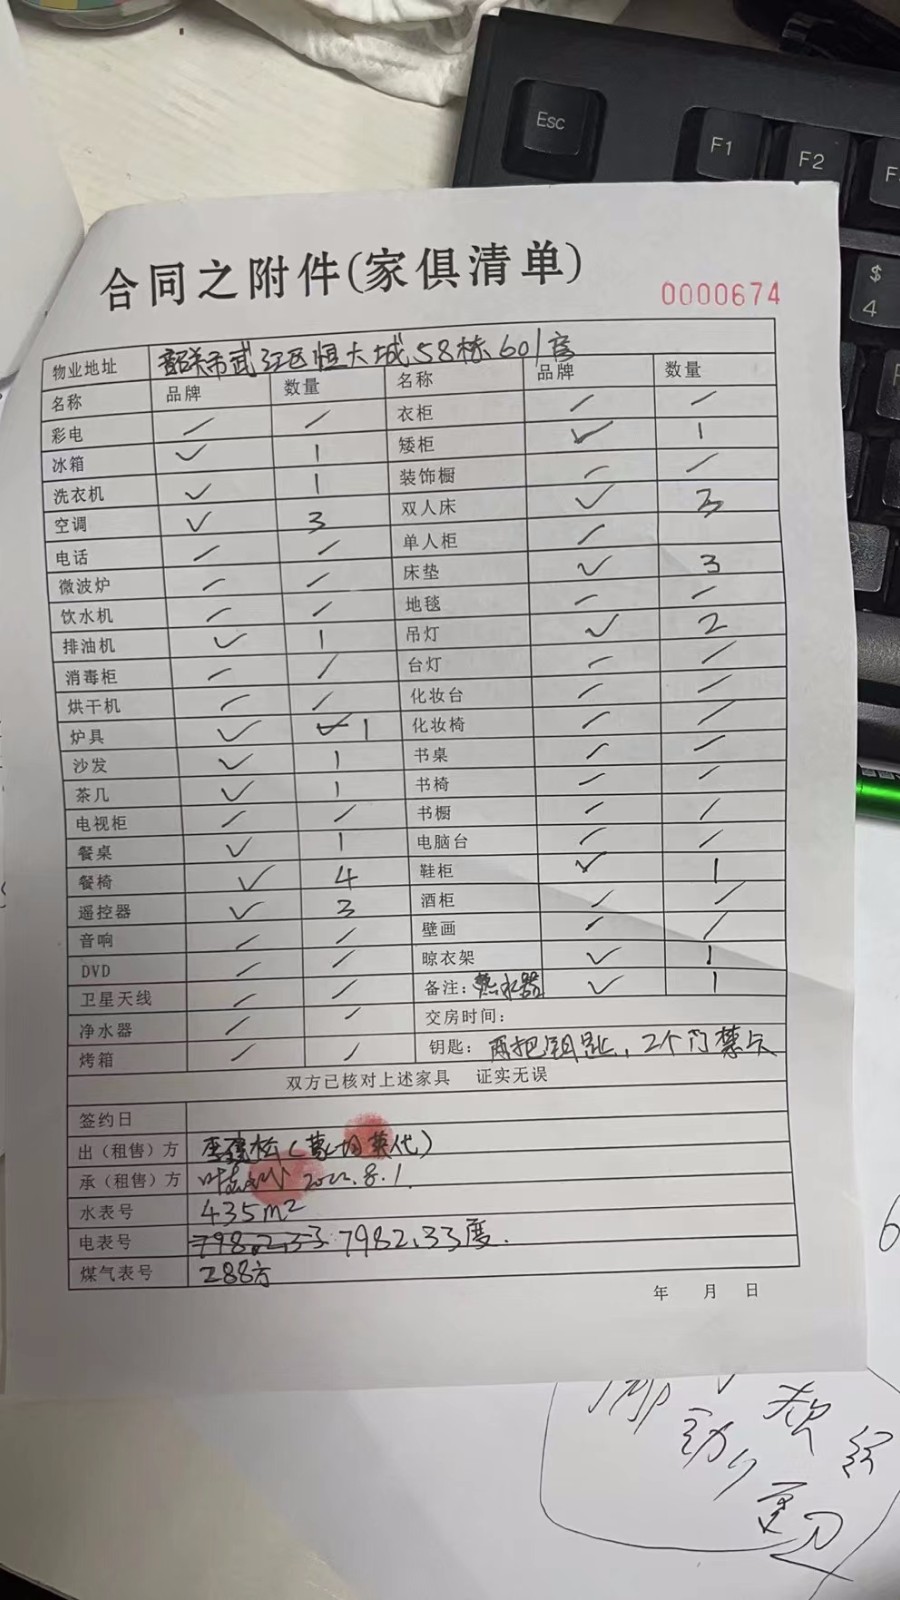 Esc
F1
F2
$
4
合同之附件(家俱清单)
0000674
物业地址 韶关市武江区恒大城58栋601房
名称 品牌 数量 名称 品牌 数量
彩电 / / 衣柜 / /
冰箱 ✓ 1 矮柜 ✓ 1
洗衣机 ✓ 1 装饰橱 / /
空调 ✓ 3 双人床 ✓ 3
电话 / / 单人柜 /
微波炉 / / 床垫 ✓ 3
饮水机 / / 地毯 / /
排油机 ✓ 1 吊灯 ✓ 2
消毒柜 / / 台灯 / /
烘干机 / / 化妆台 / /
炉具 ✓ 1 化妆椅 / /
沙发 ✓ 1 书桌 / /
茶几 ✓ 1 书椅 / /
电视柜 / / 书橱 / /
餐桌 ✓ 1 电脑台 / /
餐椅 ✓ 4 鞋柜 ✓ 1
遥控器 ✓ 3 酒柜 / /
音响 / / 壁画 / /
DVD / / 晾衣架 ✓ 1
卫星天线 / / 备注:热水器 ✓ 1
净水器 / / 交房时间:
烤箱 / / 钥匙: 两把钥匙,2个门禁卡
双方已核对上述家具 证实无误
签约日
出（租售）方
承（租售）方 2022.8.1.
水表号 435m2
电表号 798.2.33 7982.33度.
煤气表号 288方
年 月 日